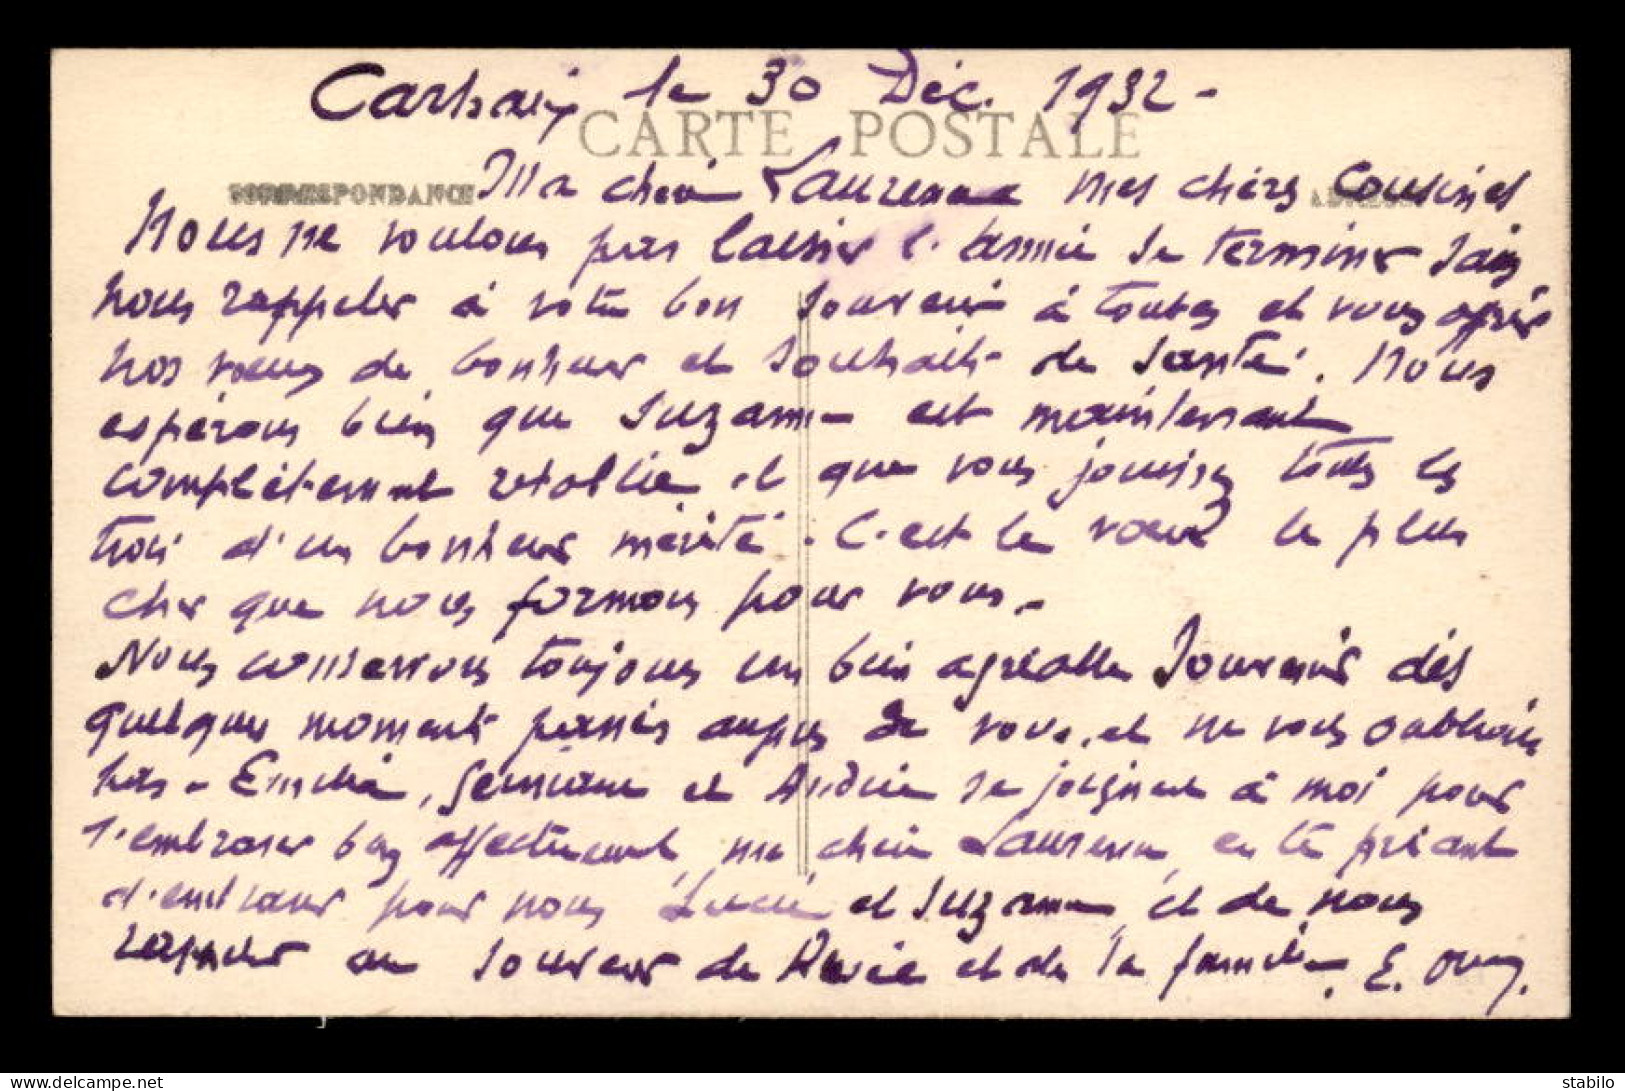 Carhaix le 30 Déc. 1932 -
CARTE POSTALE
CORRESPONDANCE
Ma chère Laurence mes chères Cousines
Nous ne voulons pas laisser l'année se terminer sans
nous rappeler à votre bon souvenir à toutes et vous offrir
nos vœux de bonheur et souhaits de santé. Nous
espérons bien que Suzanne est maintenant
complètement rétablie et que vous jouissez toutes les
trois d'un bonheur mérité. C'est le vœux le plus
cher que nous formons pour vous. -
Nous conservons toujours un bien agréable souvenir des
quelques moments passés auprès de vous, et ne vous oublions
pas - Emilia, Germaine et Andrée se joignent à moi pour
t'embrasser bien affectueusement, ma chère Laurence, en te priant
d'embrasser pour nous Lucie et Suzanne, et de nous
rappeler au souvenir de Marie et de la famille. E.
stabilo